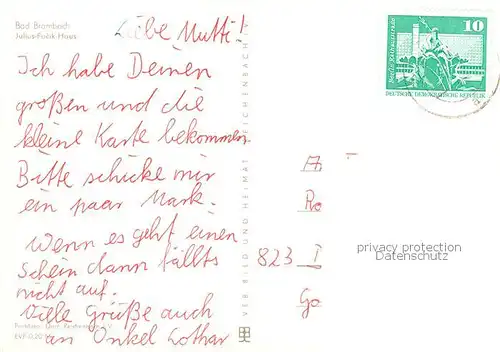 Bad Brambach
Julius-Fučik-Haus
Liebe Mutti!
Ich habe Deinen
großen und die
kleine Karte bekommen.
Bitte schicke mir
ein paar Mark.
Wenn es geht einen
Schein dann fällts
nicht auf.
Viele Grüße auch
an Onkel Lothar
VEB BILD UND HEIMAT REICHENBACH
10
DEUTSCHE DEMOKRATISCHE REPUBLIK
823 I
privacy protection
Datenschutz